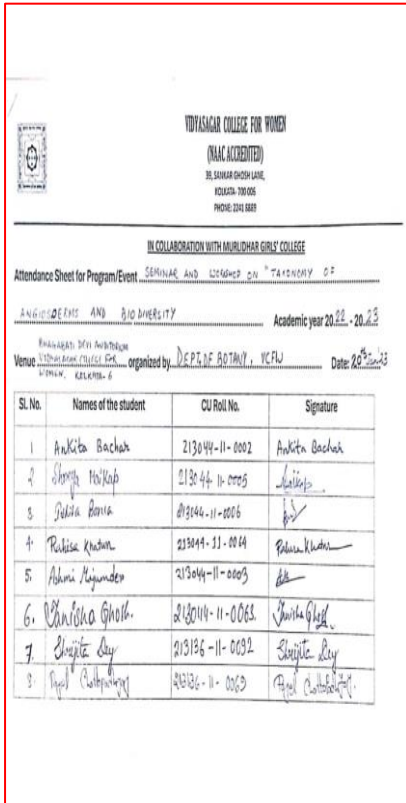 VIDYASAGAR COLLEGE FOR WOMEN
(NAAC ACCREDITED)
39, SANKAR GHOSH LANE,
KOLKATA-700 006
PHONE: 2241 8889
IN COLLABORATION WITH MURLIDHAR GIRLS' COLLEGE
Attendance Sheet for Program/Event SEMINAR AND WORKSHOP ON "TAXONOMY OF
ANGIOSPERMS AND BIODIVERSITY Academic year 2022 - 2023
Venue BHAGABATI DEVI AUDITORIUM VIDYASAGAR COLLEGE FOR WOMEN, KOLKATA-6 organized by DEPT. OF BOTANY, VCFW Date: 20th
Sl. No. Names of the student CU Roll No. Signature
1 Ankita Bachar 213044-11-0002 Ankita Bachar
2 213044-11-0005
3 213044-11-0006
4. Khatun 213044-11-0064 Khatun
5. Ashmi Majumder 213044-11-0003
6. Tanisha Ghosh. 213044-11-0063. Tanisha Ghosh.
7. Shreejita Dey 213136-11-0092 Shreejita Dey
8. Payel Chattopadhyay 213136-11-0069 Payel Chattopadhyay.